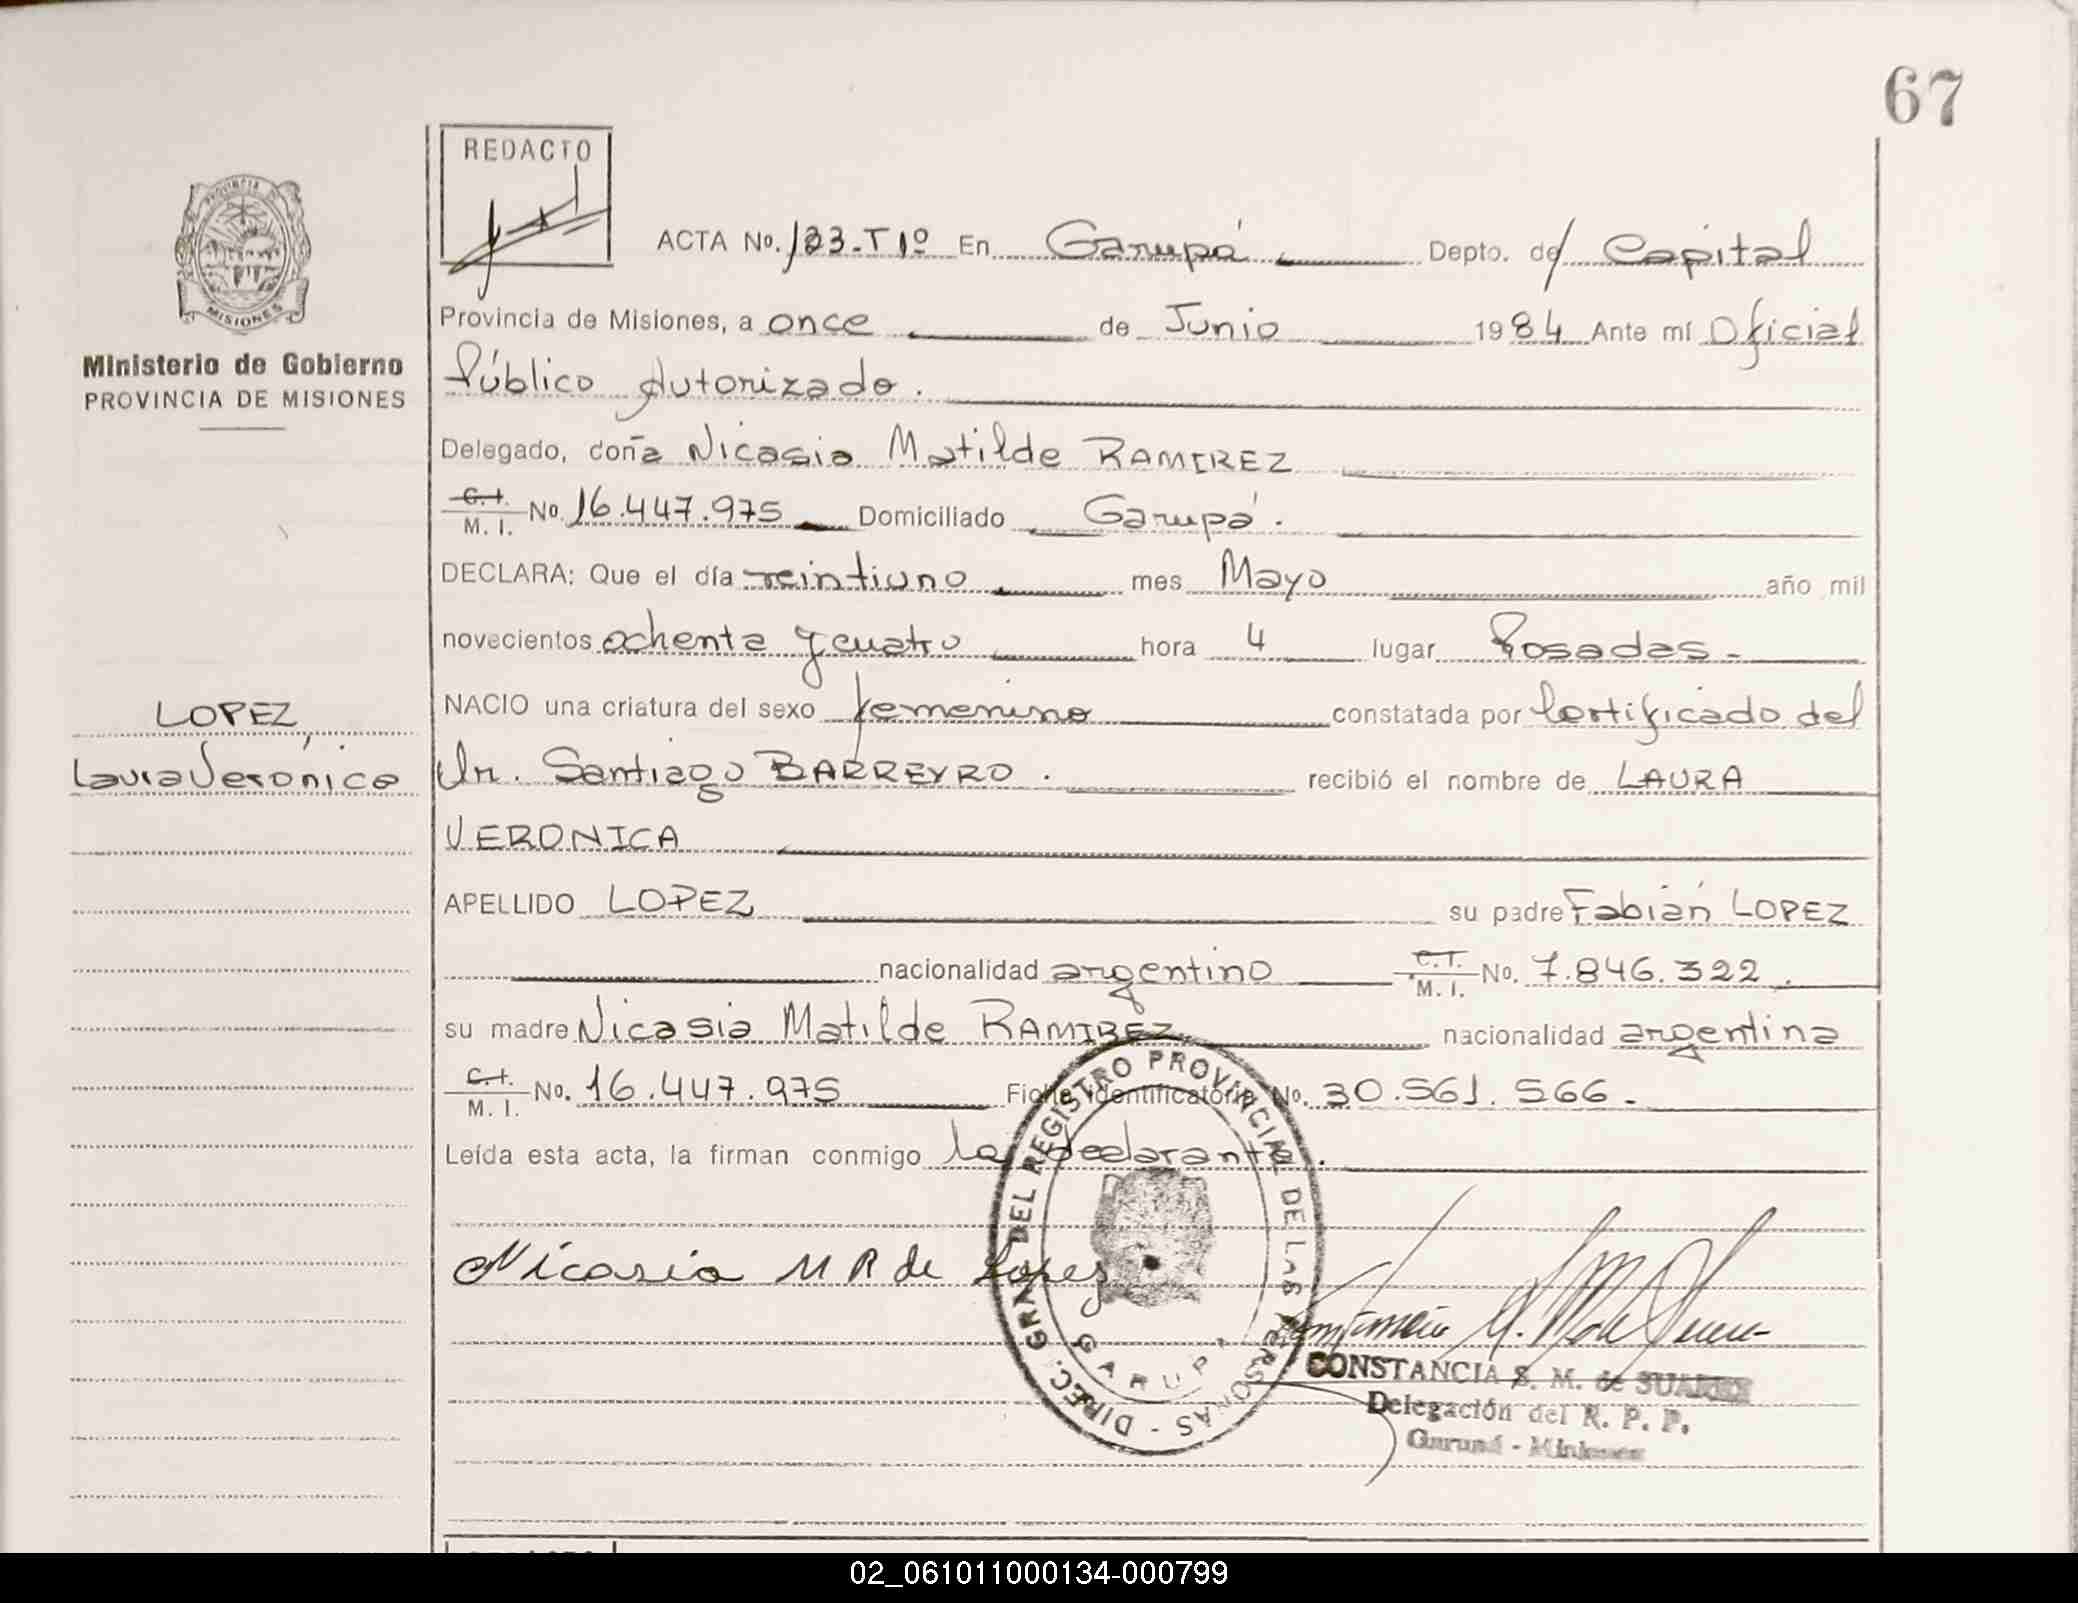 67
REDACTO
PROVINCIA DE
MISIONES
Ministerio de Gobierno
PROVINCIA DE MISIONES
LOPEZ,
Laura Verónica
ACTA No. 133-T1º En Garupá Depto. de Capital
Provincia de Misiones, a once de Junio 1984 Ante mí Oficial
Público Autorizado.
Delegado, doña Nicasia Matilde RAMIREZ
C.I. M. I. No. 16.447.975 Domiciliado Garupá.
DECLARA: Que el día veintiuno mes Mayo año mil
novecientos ochenta y cuatro hora 4 lugar Posadas-
NACIO una criatura del sexo femenino constatada por Certificado del
Dr. Santiago BARREYRO. recibió el nombre de LAURA
VERONICA
APELLIDO LOPEZ su padre Fabián LOPEZ
nacionalidad argentino C.I. M. I. No. 7.846.322.
su madre Nicasia Matilde RAMIREZ nacionalidad argentina
C.I. M. I. No. 16.447.975 Ficha Identificatoria No. 30.561.566.
Leída esta acta, la firman conmigo la declarante.
Nicasia M R de Lopez
DIREC. GRAL DEL REGISTRO PROVINCIAL DE LAS PERSONAS -
GARUPA
CONSTANCIA S. M. de SUAREZ
Delegación del R. P. P.
Garupá - Misiones
02_061011000134-000799